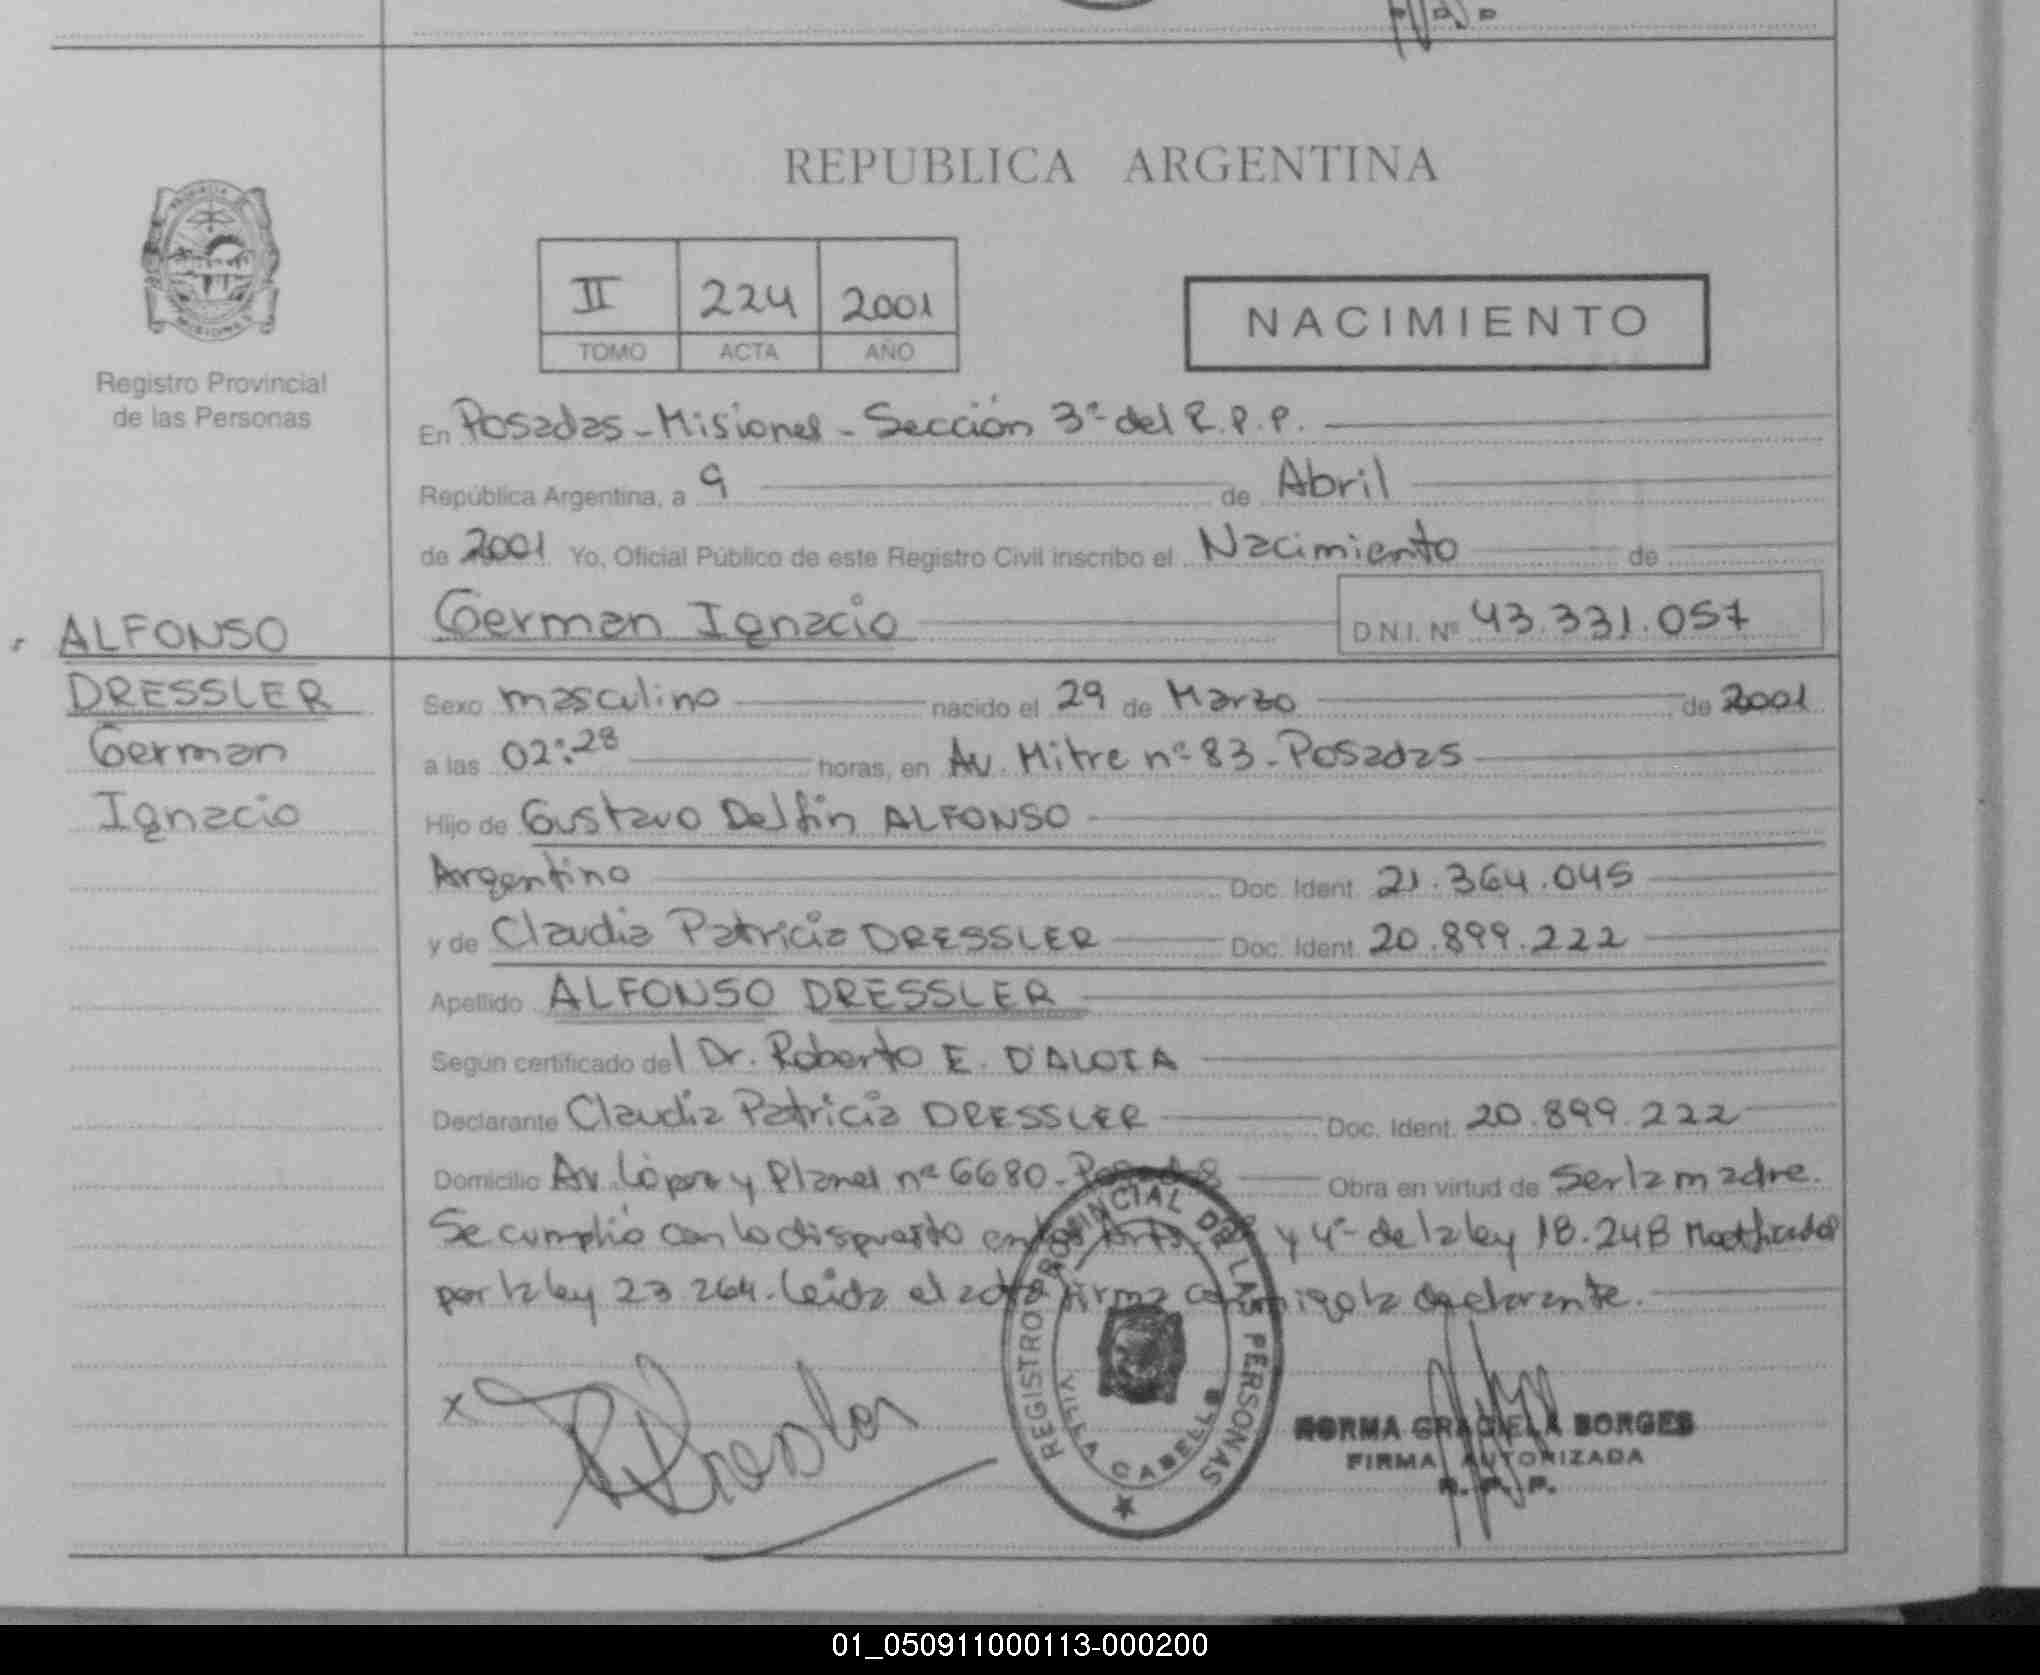 REPUBLICA ARGENTINA
II 224 2001
TOMO ACTA AÑO
NACIMIENTO
Registro Provincial
de las Personas
En Posadas - Misiones - Sección 3ª del R.P.P.
República Argentina, a 9 de Abril
de 2001 Yo, Oficial Público de este Registro Civil inscribo el Nacimiento de
German Ignacio D.N.I. Nº 43.331.057
ALFONSO
DRESSLER
German
Ignacio
Sexo masculino nacido el 29 de Marzo de 2001
a las 02:28 horas, en Av. Mitre nº 83 - Posadas
Hijo de Gustavo Delfin ALFONSO
Argentino Doc. Ident. 21.364.045
y de Claudia Patricia DRESSLER Doc. Ident. 20.899.222
Apellido ALFONSO DRESSLER
Según certificado del Dr. Roberto E. D'ALOIA
Declarante Claudia Patricia DRESSLER Doc. Ident. 20.899.222
Domicilio Av. López y Planes nº 6680 - Posadas Obra en virtud de ser la madre.
Se cumplió con lo dispuesto en los Arts. y 4º de la ley 18.248 Modificados
por la ley 23.264. Leída el acta firma conmigo la declarante.
x Dressler
REGISTRO PROVINCIAL DE LAS PERSONAS
VILLA CABELLO
NORMA GRACIELA BORGES
FIRMA AUTORIZADA
R. P. P.
01_050911000113-000200